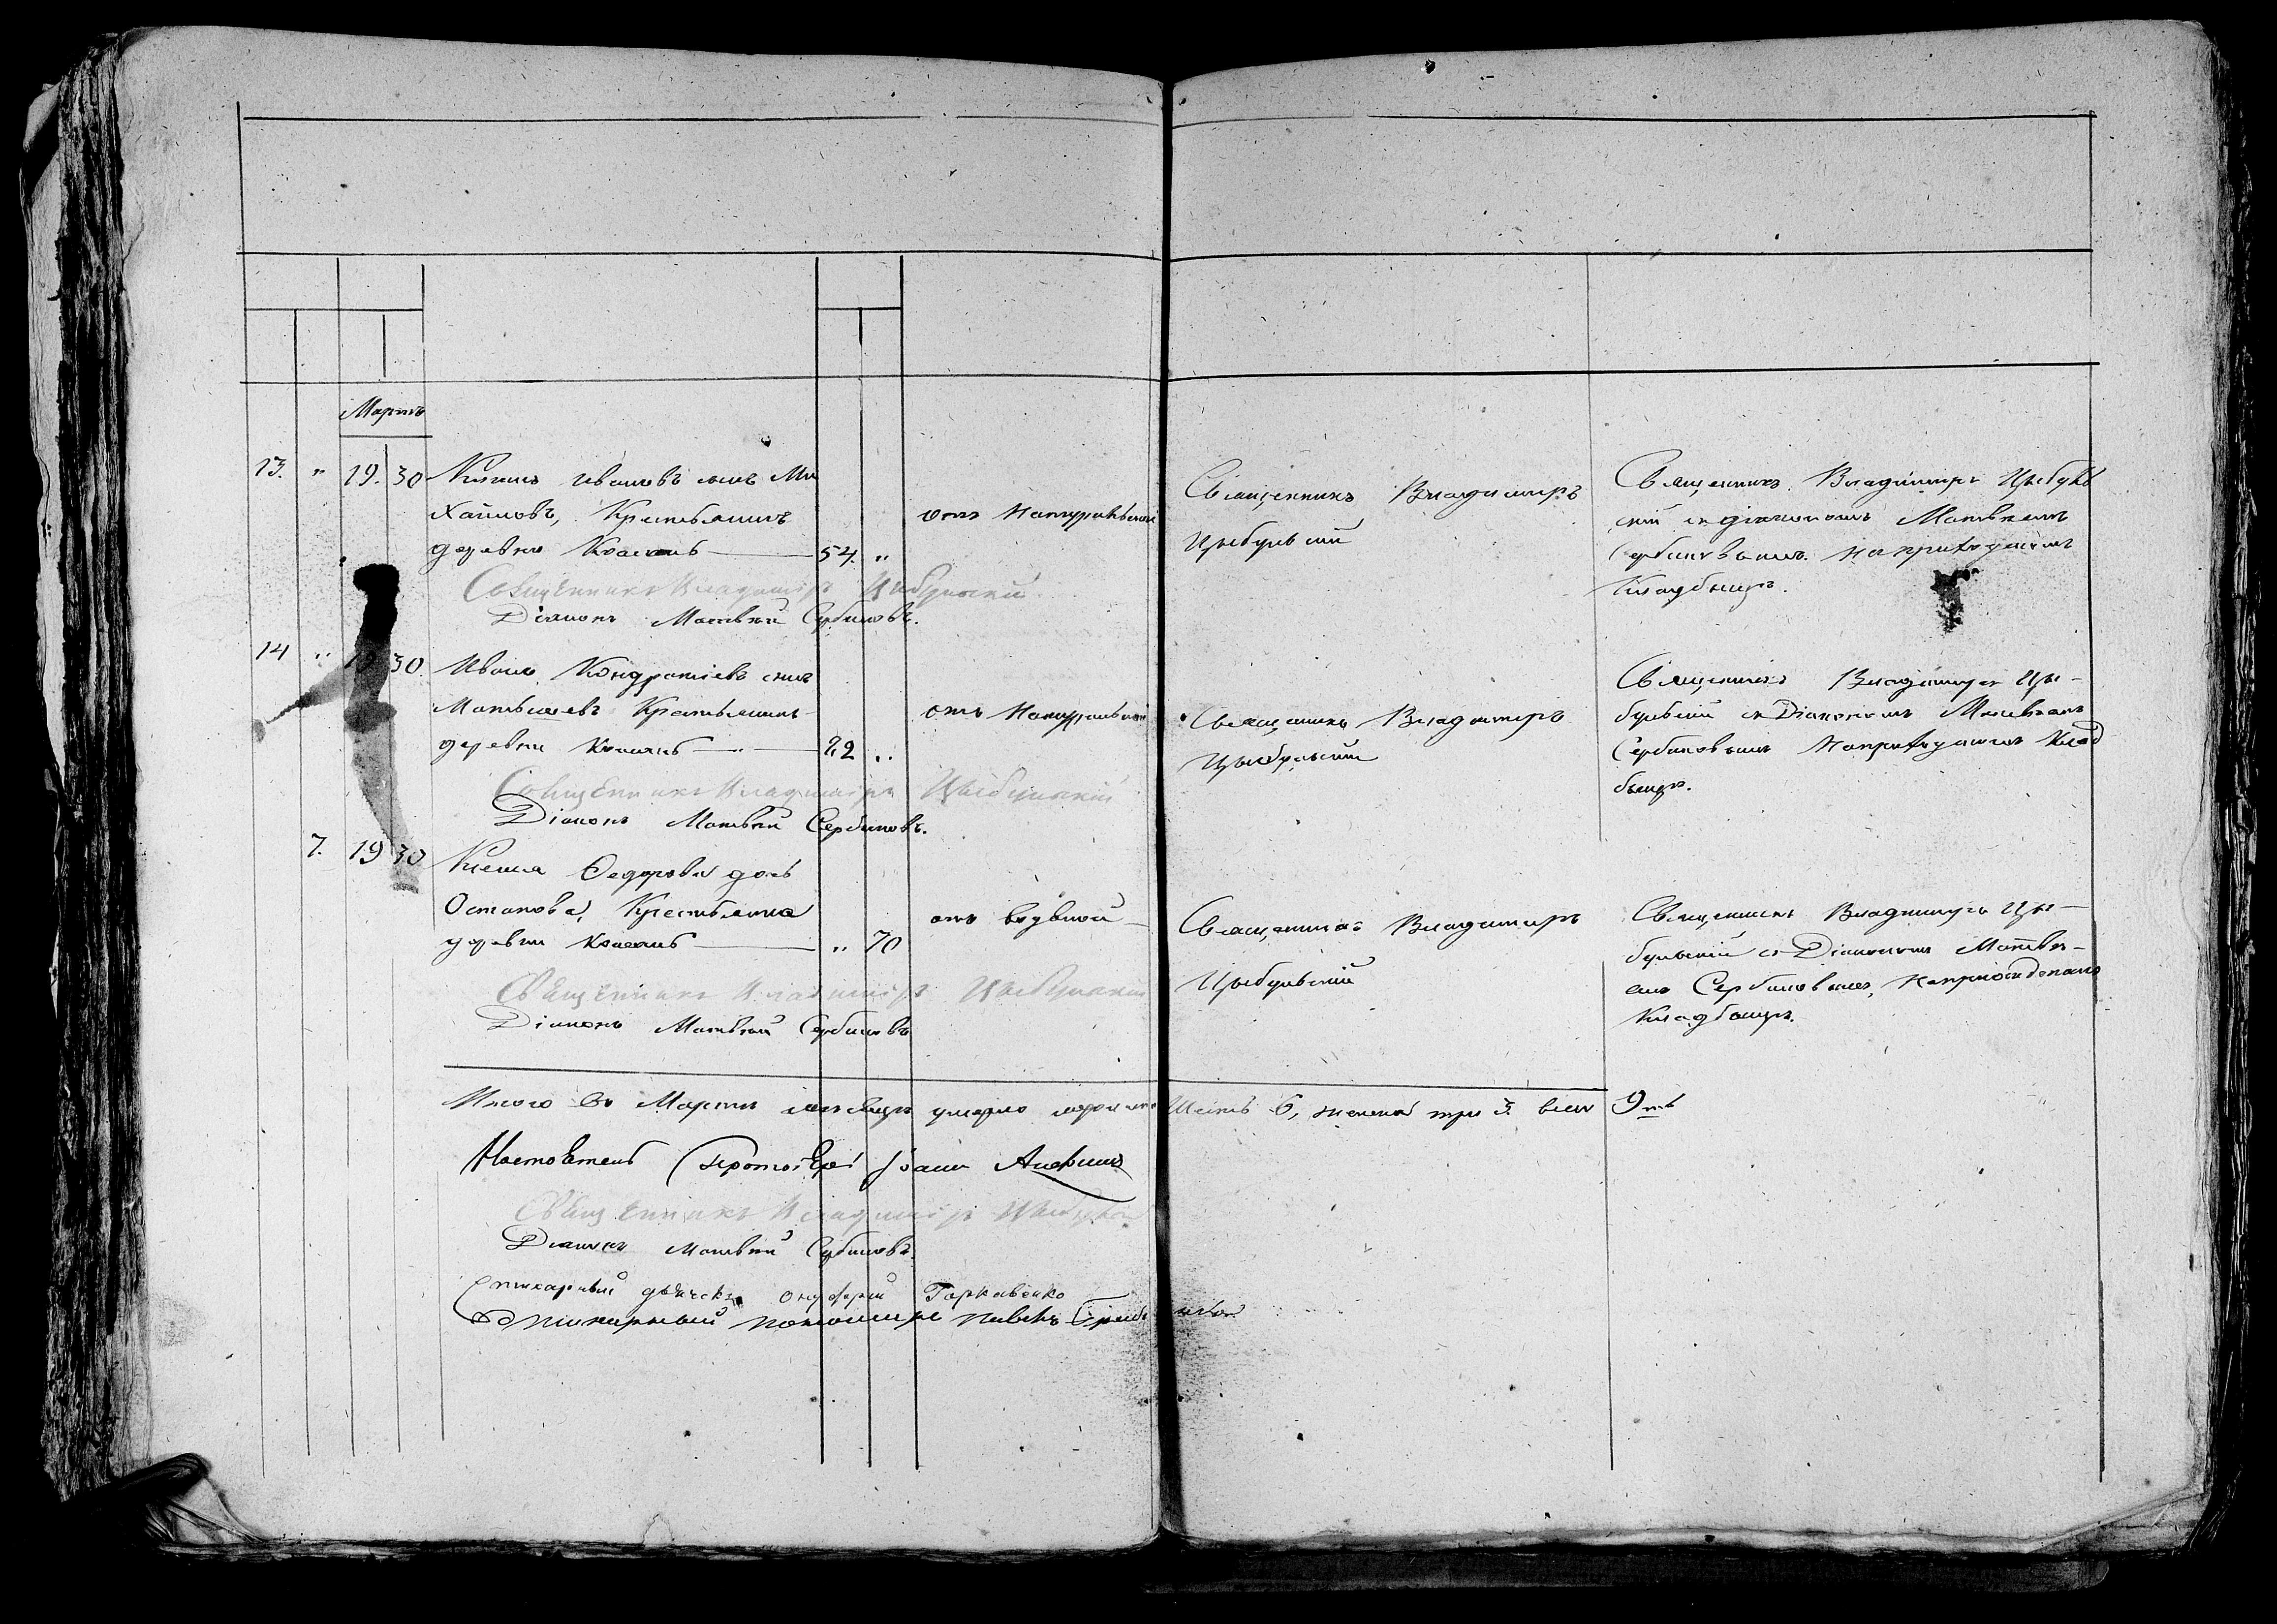 Мартъ
13. " 19. 30 Ивановъ сынъ Ми
хайловъ, Крестьянинъ
деревни 54. "
отъ Натуральной
Священникъ Владимиръ
Цыбульскій
Священникъ Владимиръ Цыбуль
скій съ діакономъ Матвѣемъ
Сербиновымъ. на приходскомъ
Кладбищѣ.
Священникъ Владиміръ Цыбульскій
Діаконъ Матвѣй Сербиновъ.
14 " 30. Иванъ Кондратіевъ сынъ
Матвѣевъ Крестьянинъ
деревни 22 "
отъ Натуральной
Священникъ Владимиръ
Цыбульскій
Священникъ Владимиръ Цы-
бульскій съ Діакономъ Матвѣемъ
Сербиновымъ На приходскомъ Клад
бищѣ.
Священникъ Владиміръ Цыбульскій
Діаконъ Матвѣй Сербиновъ.
7. 19 30 Ксенія Федорова дочь
Остапова, Крестьянка
деревни " 70
отъ водяной
Священникъ Владимиръ
Цыбульскій
Священникъ Владимиръ Цы-
бульскій съ Діакономъ Матвѣ-
емъ Сербиновымъ, На приходскомъ
Кладбищѣ.
Священникъ Владиміръ Цыбульскій
Діаконъ Матвѣй Сербиновъ
Итого въ Мартѣ мѣсяцѣ умерло мужеска Шесть 6, женска три 3. всѣхъ 9ть
Настоятель Протоіерей Іоаннъ
Священникъ Владиміръ Цыбульскій
Діаконъ Матвѣй Сербиновъ.
дьячекъ Онуфрій Горкавенко
пономарь